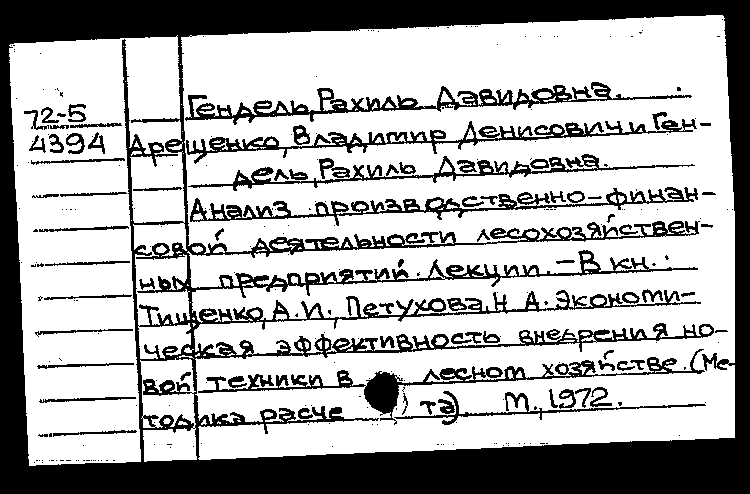 Гендель, Рахиль Давидовна.
72-5
4394 Арещенко, Владимир Денисович и Ген-
дель, Рахиль Давидовна.
Анализ производственно-финан-
совой деятельности лесохозяйствен-
ных предприятий. Лекции. - В кн.:
Тищенко, А.И., Петухова, Н.А. Экономи-
ческая эффективность внедрения но-
вой техники в лесном хозяйстве. (Ме-
тодика расче та). М., 1972.